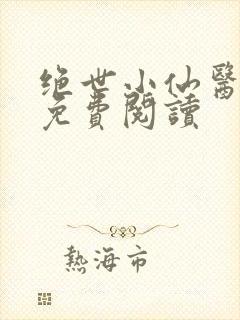 绝世小仙醫
免費閱讀
熱海市